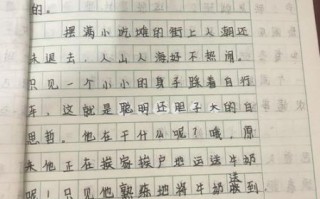 的。
摆满小吃摊的街上人潮还
未退去，人山人海好不热闹。
只见一个小小的身子骑着自行
车，这就是聪明还胆子大的白
思哲。他在干什么呢？哦，原
来他正在挨家挨户地运送牛奶
呢！只见他熟练地将牛奶送到，